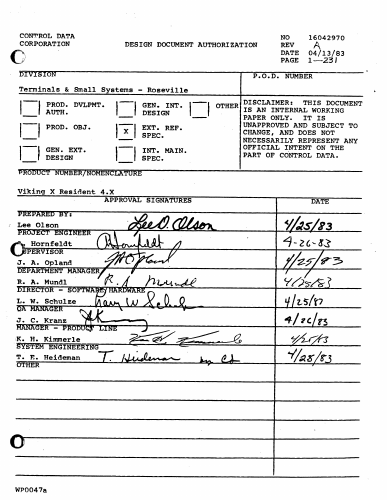 CONTROL DATA
CORPORATION
DESIGN DOCUMENT AUTHORIZATION
NO 16042970
REV A
DATE 04/13/83
PAGE 1-231
DIVISION
P.O.D. NUMBER
Terminals & Small Systems - Roseville
PROD. DVLPMT. AUTH.
GEN. INT. DESIGN
OTHER
PROD. OBJ.
X EXT. REF. SPEC.
GEN. EXT. DESIGN
INT. MAIN. SPEC.
DISCLAIMER: THIS DOCUMENT
IS AN INTERNAL WORKING
PAPER ONLY. IT IS
UNAPPROVED AND SUBJECT TO
CHANGE, AND DOES NOT
NECESSARILY REPRESENT ANY
OFFICIAL INTENT ON THE
PART OF CONTROL DATA.
PRODUCT NUMBER/NOMENCLATURE
Viking X Resident 4.X
APPROVAL SIGNATURES
DATE
PREPARED BY:
Lee Olson Lee O. Olson 4/25/83
PROJECT ENGINEER
Hornfeldt Hornfeldt 4-26-83
SUPERVISOR
J. A. Opland J A Opland 4/25/83
DEPARTMENT MANAGER
R. A. Mundl R. A. Mundl 4/25/83
DIRECTOR - SOFTWARE/HARDWARE
L. W. Schulze Larry W Schulze
QA MANAGER
J. C. Kranz 4/26/83
MANAGER - PRODUCT LINE
K. H. Kimmerle K. H. Kimmerle
SYSTEM ENGINEERING
T. E. Heideman T. Heideman by 4/28/83
OTHER
WP0047a